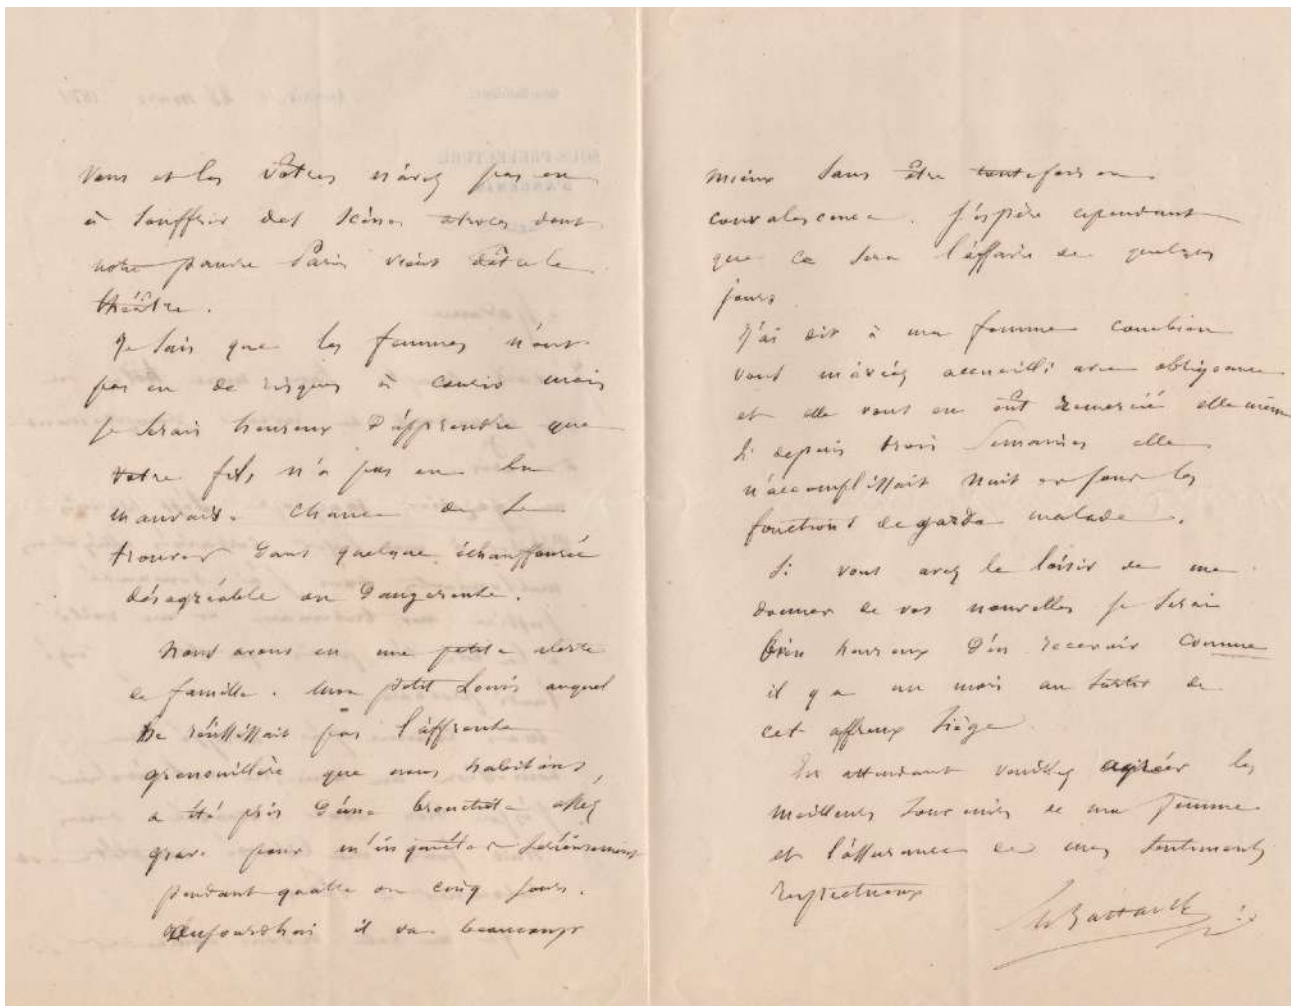 Vous et les Vôtres n'avez pas eu
à souffrir des scènes atroces dont
notre pauvre Paris vient d'être le
théâtre.
Je sais que les femmes n'ont
pas eu de risques à courir mais
je serais heureux d'apprendre que
votre fils n'a pas eu la
mauvaise chance de se
trouver dans quelque échauffourée
désagréable ou dangereuse.
Nous avons eu une petite alerte
de famille. Mon petit Louis auquel
ne réussissait pas l'affreuse
grenouillère que nous habitons,
a été pris d'une bronchite assez
grave pour m'inquiéter sérieusement
pendant quatre ou cinq jours.
Aujourd'hui il va beaucoup
mieux sans être toutefois en
convalescence. J'espère cependant
que ce sera l'affaire de quelques
jours
J'ai dit à ma femme combien
vous m'aviez accueilli avec obligeance
et elle vous en eût remercié elle même
si depuis trois semaines elle
n'accomplissait nuit et jour les
fonctions de garde malade.
Si vous avez le loisir de me
donner de vos nouvelles je serai
bien heureux d'en recevoir comme
il y a un mois au sortir de
cet affreux siège.
En attendant veuillez agréer les
meilleurs souvenirs de ma femme
et l'assurance de mes sentiments
respectueux